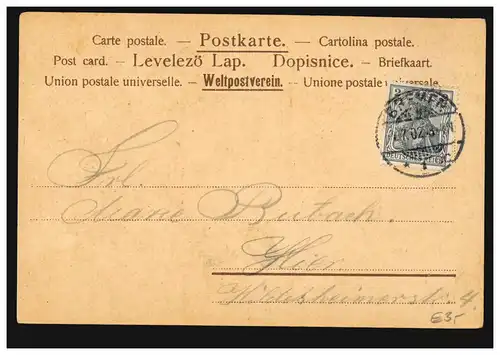 Carte postale. — Postkarte. — Cartolina postale.
Post card. — Levelező Lap. Dopisnice. — Briefkaart.
Union postale universelle. — Weltpostverein. — Unione postale universale
BREMEN
Frl.
Marie Butach.
Hier
Hildesheimerstr. 4.
E3,-